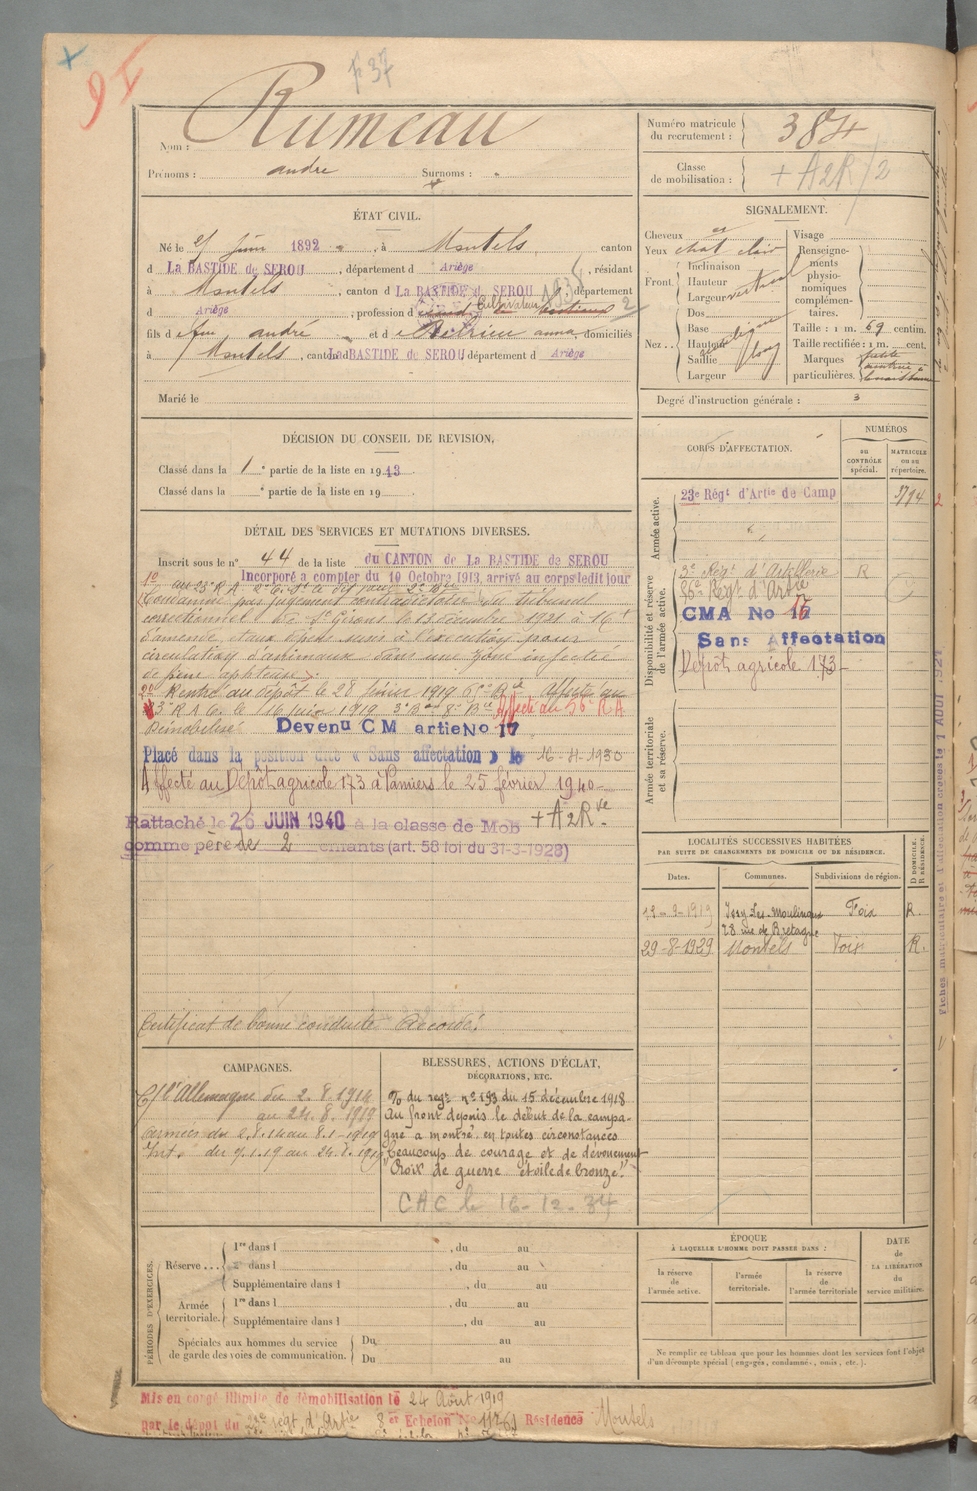 9 I
F 37
Nom : Rumeau
Prénoms : andre Surnoms : "
Numéro matricule du recrutement : 384
Classe de mobilisation : + A2R/2
ÉTAT CIVIL.
Né le juin 1892, à Montels, canton
d La BASTIDE de SEROU, département d Ariège, résidant
à Montels, canton d La BASTIDE de SEROU, département
d Ariège, profession d Cultivateur 2
fils d e feu andré et d e anna, domiciliés
à Montels, canton d La BASTIDE de SEROU département d Ariège
Marié le
SIGNALEMENT.
Cheveux
Yeux chat clair
Front. Inclinaison
Hauteur vertical
Largeur
Nez .. Dos
Base
Hauteur
Saillie long
Largeur
Visage
Renseignements physionomiques complémentaires.
Taille : 1 m. 69 centim.
Taille rectifiée : 1 m. cent.
Marques particulières.
Degré d'instruction générale : 3
DÉCISION DU CONSEIL DE REVISION,
Classé dans la 1e partie de la liste en 1913.
Classé dans la e partie de la liste en 19
DÉTAIL DES SERVICES ET MUTATIONS DIVERSES.
Inscrit sous le n° 44 de la liste du CANTON de La BASTIDE de SEROU
Incorporé a compter du 10 Octobre 1913, arrivé au corps ledit jour
1° au 23e R A
Condamné par jugement contradictoire du tribunal
correctionnel de St Girons le 13 décembre 1921 à 16 f
d'amende et aux dépens sursis à l'exécution pour
circulation d'animaux dans une zone infectée
de fièvre aphteuse.
2° Rentré au dépôt le 28 1919
le 16 juin 1919 Affecté au 56e R A
Démobilisé. Devenu C M artie No 17
Placé dans la position dite « Sans affectation » le 16-4-1930
Affecté au Dépôt agricole 173 à Pamiers le 25 février 1940
Rattaché le 26 JUIN 1940 à la classe de Mob + A2Rve
comme père de 2 enfants (art. 58 loi du 31-3-1928)
Certificat de bonne conduite Accordé.
CORPS D'AFFECTATION.
NUMÉROS
au CONTRÔLE spécial.
MATRICULE ou au répertoire.
Armée active.
23e Régt d'Artie de Camp 3794
Disponibilité et réserve de l'armée active.
3e Régt d'Artillerie R
56e Régt d'Artie
CMA No 17
Sans Affectation
Dépôt agricole 173
Armée territoriale et sa réserve.
LOCALITÉS SUCCESSIVES HABITÉES
PAR SUITE DE CHANGEMENTS DE DOMICILE OU DE RÉSIDENCE.
Dates. Communes. Subdivisions de région. D DOMICILE. R RÉSIDENCE.
12-2-1919 Issy les Moulineaux Foix R.
28 rue de Bretagne
29-8-1929 Montels Foix R.
CAMPAGNES.
C/ l'Allemagne du 2.8.1914
au 24.8.1919
Armées du 2.8.14 au 8.1.1919
Int. du 9.1.19 au 24.8.1919
BLESSURES, ACTIONS D'ÉCLAT,
DÉCORATIONS, ETC.
O/ du regt n° 193 du 15 décembre 1918
Au front depuis le début de la campa-
gne a montré en toutes circonstances
beaucoup de courage et de dévouement
"Croix de guerre étoile de bronze."
CAC le 16-12-34
PÉRIODES D'EXERCICES.
Réserve ... 1re dans l , du au
2e dans l , du au
Supplémentaire dans l , du au
Armée territoriale. 1re dans l , du au
Supplémentaire dans l , du au
Spéciales aux hommes du service de garde des voies de communication. Du au
Du au
ÉPOQUE
À LAQUELLE L'HOMME DOIT PASSER DANS :
la réserve de l'armée active.
l'armée territoriale.
la réserve de l'armée territoriale
DATE de LA LIBÉRATION du service militaire.
Ne remplir ce tableau que pour les hommes dont les services font l'objet
d'un décompte spécial (engagés, condamnés, omis, etc.).
Mis en congé illimité de démobilisation le 24 Août 1919
par le dépôt du 23e régt d'Artie 8e Echelon No Résidence Montels